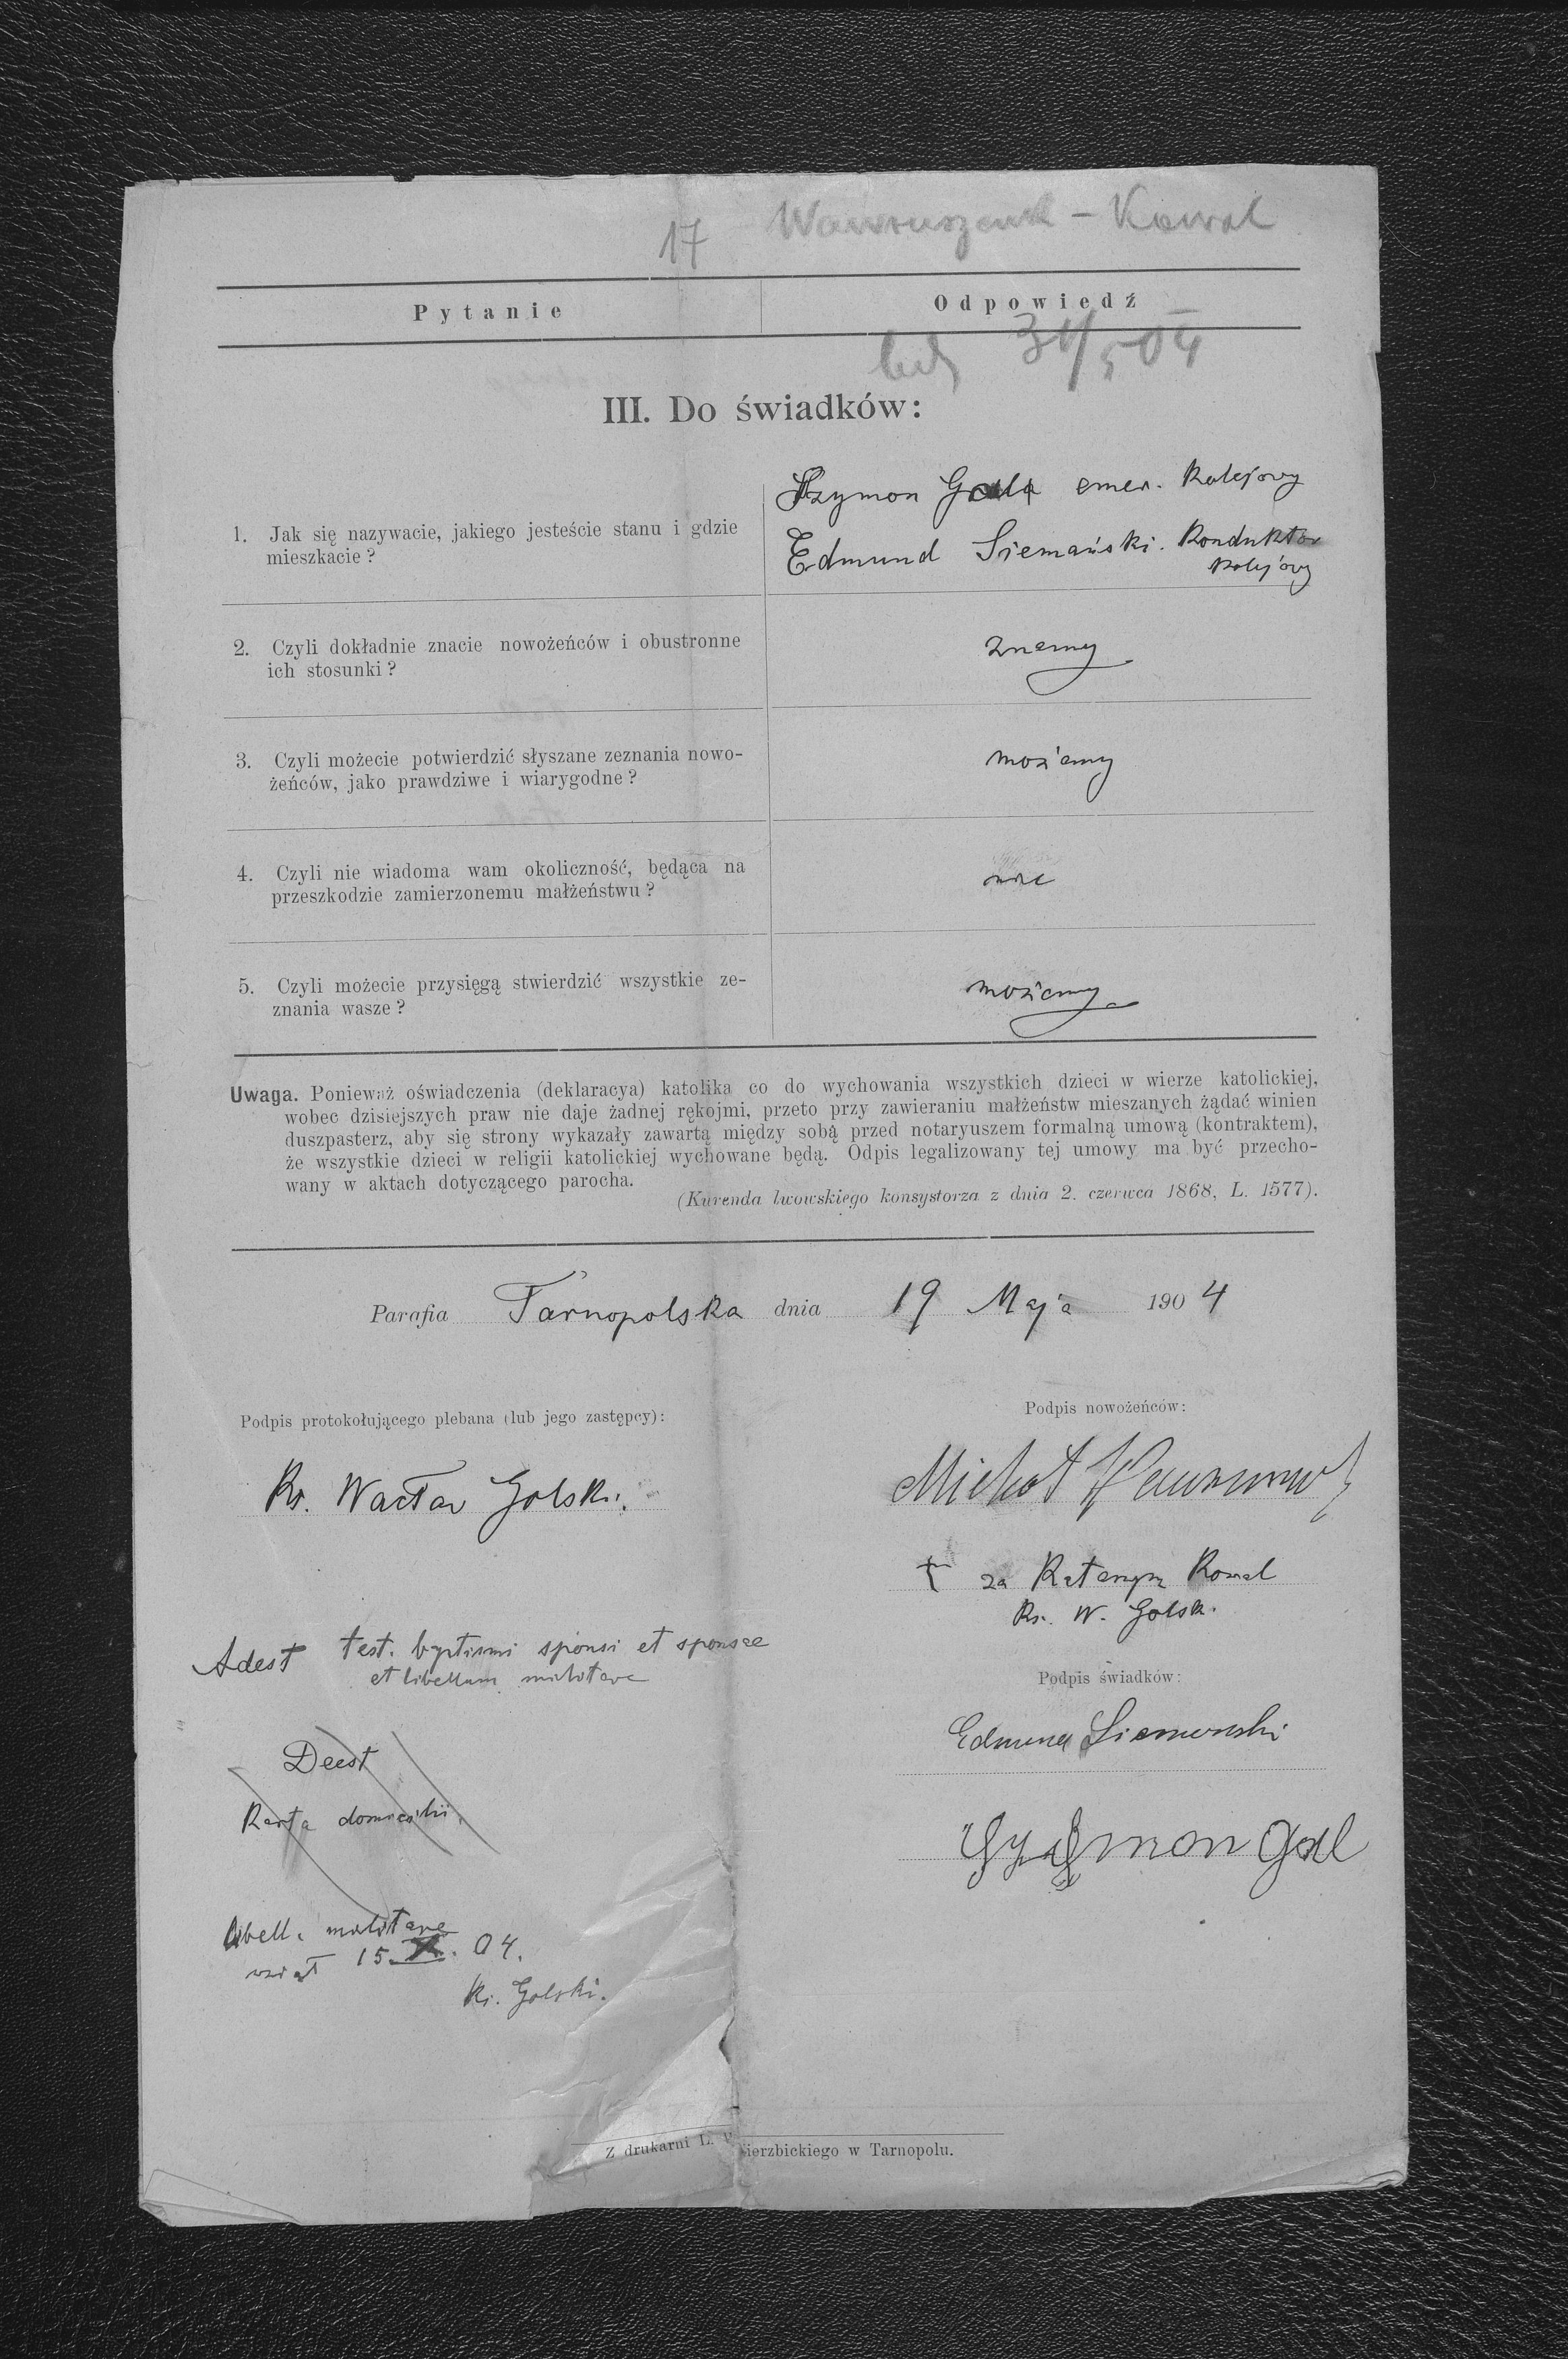 17 Wawruszczuk - Kowal
Pytanie Odpowiedź
31/5 04
III. Do świadków:
Szymon Gal emer. kolejowy
1. Jak się nazywacie, jakiego jesteście stanu i gdzie
mieszkacie?
Edmund Siemański. Konduktor
kolejowy
2. Czyli dokładnie znacie nowożeńców i obustronne
ich stosunki?
znamy
3. Czyli możecie potwierdzić słyszane zeznania nowo-
żeńców, jako prawdziwe i wiarygodne?
możemy
4. Czyli nie wiadoma wam okoliczność, będąca na
przeszkodzie zamierzonemu małżeństwu?
nie
5. Czyli możecie przysięgą stwierdzić wszystkie ze-
znania wasze?
możemy
Uwaga. Ponieważ oświadczenia (deklaracya) katolika co do wychowania wszystkich dzieci w wierze katolickiej,
wobec dzisiejszych praw nie daje żadnej rękojmi, przeto przy zawieraniu małżeństw mieszanych żądać winien
duszpasterz, aby się strony wykazały zawartą między sobą przed notaryuszem formalną umową (kontraktem),
że wszystkie dzieci w religii katolickiej wychowane będą. Odpis legalizowany tej umowy ma być przecho-
wany w aktach dotyczącego parocha.
(Kurenda lwowskiego konsystorza z dnia 2. czerwca 1868, L. 1577).
Parafia Tarnopolska dnia 19 Maja 1904
Podpis protokołującego plebana (lub jego zastępcy):
Podpis nowożeńców:
Ks. Wacław Golski.
Michał
† za Katarzynę Kowal
Ks. W. Golsk.
Adest test. baptismi sponsi et sponsae
et libellum militare
Podpis świadków:
Edmund Siemański
Deest
Karta domicilii.
Szymon Gal
Libell. militare
wziął 15.X.04.
Ks. Golski.
Z drukarni L. Wierzbickiego w Tarnopolu.